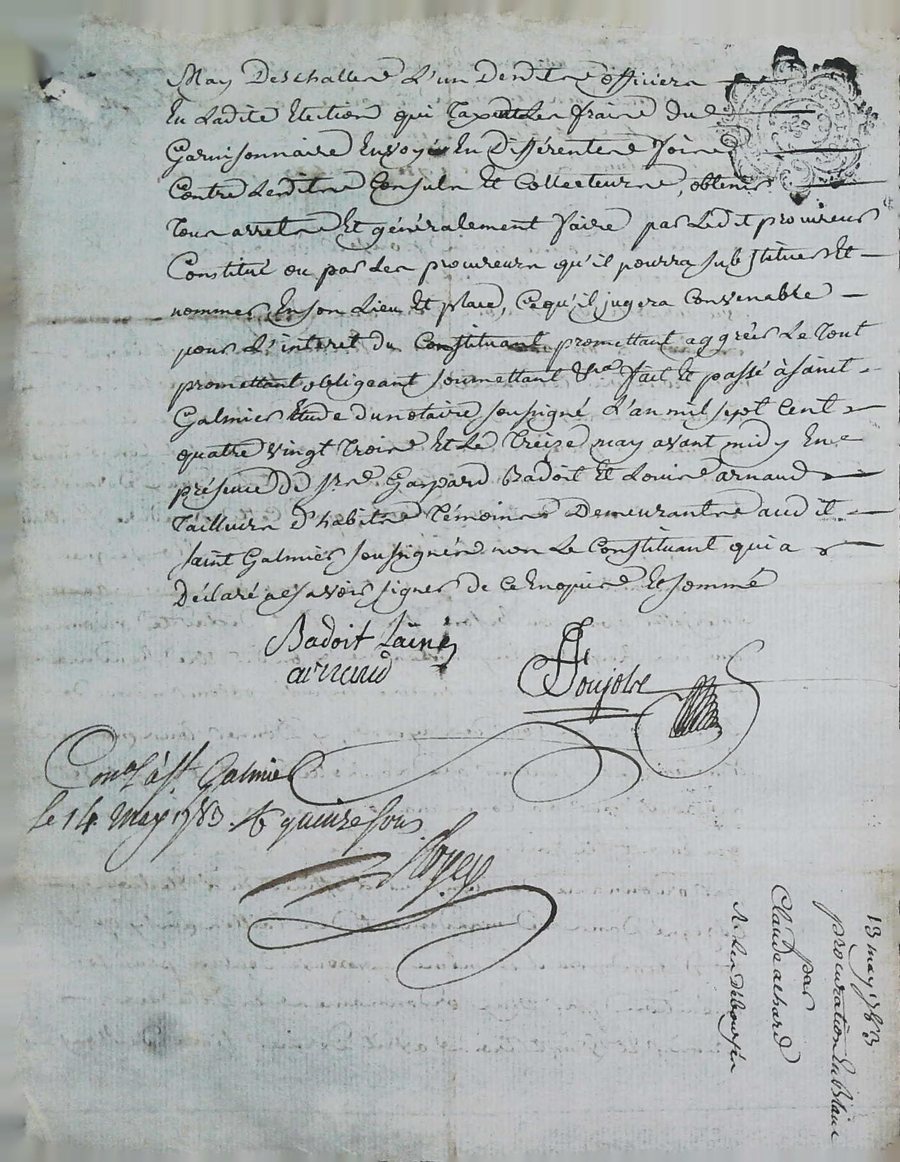 May Deschallere L'un Desdits officiers
En Ladite Election qui Taxent Les fraire du
Garnisonnaire Envoyé En Différentes foire
Contre Lesdits Consuls Et Collecteurs, obtenir
Tous arrets Et généralement faire par Ledit procureur
Constitué ou par Les procureurs qu'il pourra substituer Et
nommer En son Lieu Et place, Ce qu'il jugera Convenable
pour L'interet du Constituant promettant aggréer Le Tout
promettant obligeant soumettant &ra fait Et passé à saint
Galmier Etude du notaire soussigné L'an mil sept Cent
quatre vingt Trois Et Le Treize may avant midy En
présence De Srs Gaspard Badoit Et Louis arnaud
Tailleurs d'habits Témoins Demeurants audit
saint Galmier soussignés non Le Constituant qui a
Déclaré ne savoir signer de ce Enquis Et sommé
Badoit Lainé
arnaud
Poujolre
Conlé à St Galmier
le 14 may 1783. quinze sous
13 may 1783
procuration En Blanc
par
Claude achard